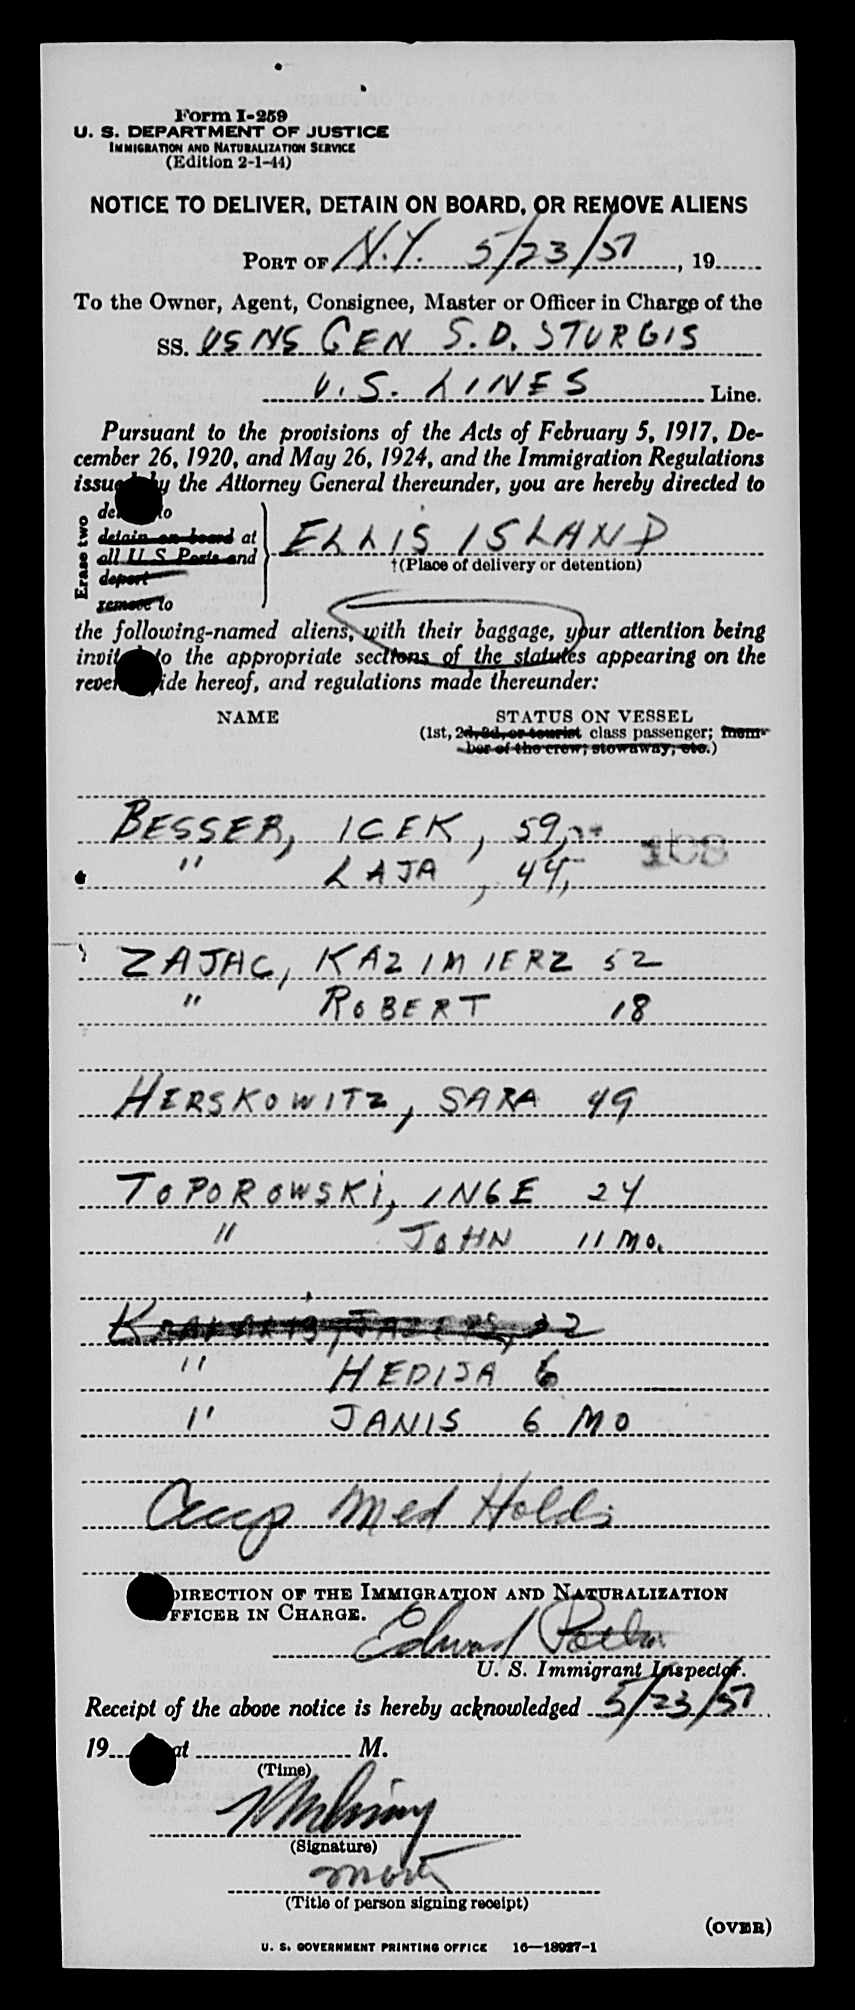 Form I-259
U. S. DEPARTMENT OF JUSTICE
IMMIGRATION AND NATURALIZATION SERVICE
(Edition 2-1-44)
NOTICE TO DELIVER, DETAIN ON BOARD, OR REMOVE ALIENS
PORT OF N.Y. 5/23/51, 19
To the Owner, Agent, Consignee, Master or Officer in Charge of the
SS. USNS GEN S.D. STURGIS
U.S. LINES Line.
Pursuant to the provisions of the Acts of February 5, 1917, De-
cember 26, 1920, and May 26, 1924, and the Immigration Regulations
issued by the Attorney General thereunder, you are hereby directed to
Erase two
de to
detain on board at
all U S Ports and
deport
remove to
ELLIS ISLAND
†(Place of delivery or detention)
the following-named aliens, with their baggage, your attention being
invit to the appropriate sections of the statutes appearing on the
rever ide hereof, and regulations made thereunder:
NAME STATUS ON VESSEL
(1st, 2d, 3d, or tourist class passenger; mem-
ber of the crew; stowaway, etc.)
BESSER, ICEK, 59, 108
" LAJA, 44,
ZAJAC, KAZIMIERZ 52
" ROBERT 18
HERSKOWITZ, SARA 49
TOPOROWSKI, INGE 24
" JOHN 11 MO.
" HEDIJA 6
" JANIS 6 MO
Accp Med Holds
DIRECTION OF THE IMMIGRATION AND NATURALIZATION
OFFICER IN CHARGE.
Edward
U. S. Immigrant Inspector.
Receipt of the above notice is hereby acknowledged 5/23/51
19 at M.
(Time)
(Signature)
(Title of person signing receipt)
(OVER)
U. S. GOVERNMENT PRINTING OFFICE 16—18927-1